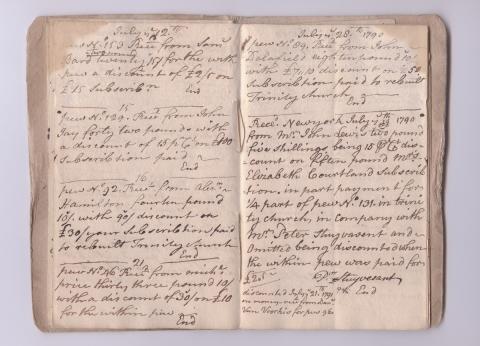 July ye 12th
pew No. 153 Recd. from Saml.
two pound
Bard twenty 15/ for the with
pew a discount of £2/5 on
£15 Subscribn.
End
15
pew No. 129. Recd. from John
Jay forty two pounds with
a discount of 15 p Ct. on £100
Subscribtion paid
End
16
pew No. 92. Recd. from Alexr.
Hamilton fourteen pound
10/. with 90/ discount on
£30/ your Subscribtion paid
to rebuilt Trinity Church
End
21
pew No. 46 Recd. from
price thirty three pound 10/
with a discount of 30/ on £10
for the within pew
End
July ye 28th 1790
pew No. 89. Recd. from John
Delafield eighteen pound 10/
with £7,10 discount on £50
Subscribtion paid to rebuilt
Trinity church
End
Recd. Newyork July 1790
from Mr. John Lewis two pound
five shillings being 15 P Ct. dis-
count on fifteen pound Mrs.
Elviabeth Courtland Subscrib
tion, in part payment for
1/4 part of pew No. 131. in trini
ty church, in company with
Mr. Peter Stuyvesant and
omitted being discounted when
the within pew was paid for
£2.5 Stuyvesant
discounted July ye 21th 1791 End
on money recd. from
Van Voorhis for pew 96